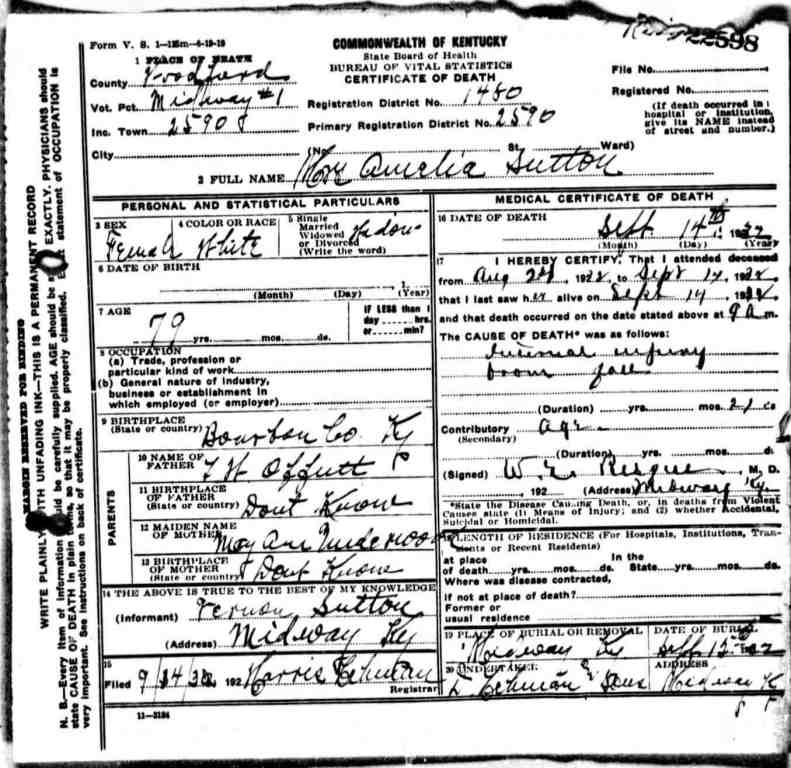 22598
Form V. S. 1—125m—6-19-19
COMMONWEALTH OF KENTUCKY
State Board of Health
BUREAU OF VITAL STATISTICS
CERTIFICATE OF DEATH
1 PLACE OF DEATH
County Woodford
Vot. Pct. Midway #1
Inc. Town 2590
City
File No.
Registered No.
Registration District No. 1480
Primary Registration District No. 2590
(If death occurred in a hospital or institution, give its NAME instead of street and number.)
(No. St. Ward)
2 FULL NAME Mrs Amelia Sutton
PERSONAL AND STATISTICAL PARTICULARS
3 SEX Female
4 COLOR OR RACE White
5 Single Married Widowed or Divorced (Write the word) Widow
6 DATE OF BIRTH
(Month) (Day) (Year)
7 AGE
79 yrs. mos. ds.
IF LESS than 1 day hrs. or min?
8 OCCUPATION
(a) Trade, profession or particular kind of work
(b) General nature of industry, business or establishment in which employed (or employer)
9 BIRTHPLACE (State or country) Bourbon Co. Ky
PARENTS
10 NAME OF FATHER Offutt
11 BIRTHPLACE OF FATHER (State or country) Dont Know
12 MAIDEN NAME OF MOTHER May Ann Underwood
13 BIRTHPLACE OF MOTHER (State or country) Dont Know
14 THE ABOVE IS TRUE TO THE BEST OF MY KNOWLEDGE
(Informant) Vernon Sutton
(Address) Midway Ky
15
Filed 9/14 192 Harris Lehman
Registrar
11—3184
MEDICAL CERTIFICATE OF DEATH
16 DATE OF DEATH
Sept 14th 1922
(Month) (Day) (Year)
17 I HEREBY CERTIFY, That I attended deceased
from Aug 1922 to Sept 14, 1922
that I last saw her alive on Sept 14 1922
and that death occurred on the date stated above at 9 a m.
The CAUSE OF DEATH* was as follows:
Internal injury
from fall
(Duration) yrs. mos. 21 ds
Contributory Age
(Secondary)
(Duration) yrs. mos. ds
(Signed) W. E. Risque M. D.
, 192 (Address) Midway Ky.
*State the Disease Causing Death, or, in deaths from Violent Causes state (1) Means of Injury; and (2) whether Accidental, Suicidal or Homicidal.
LENGTH OF RESIDENCE (For Hospitals, Institutions, Transients or Recent Residents)
at place of death yrs. mos. ds. In the State yrs. mos. ds.
Where was disease contracted,
if not at place of death?
Former or usual residence
19 PLACE OF BURIAL OR REMOVAL
DATE OF BURIAL
Midway Ky
20 UNDERTAKER
ADDRESS
Lehman & Sons Midway K
MARGIN RESERVED FOR BINDING
WRITE PLAINLY WITH UNFADING INK—THIS IS A PERMANENT RECORD
N. B.—Every item of information should be carefully supplied. AGE should be EXACTLY. PHYSICIANS should
state CAUSE OF DEATH in plain terms, so that it may be properly classified. statement of OCCUPATION is
very important. See instructions on back of certificate.